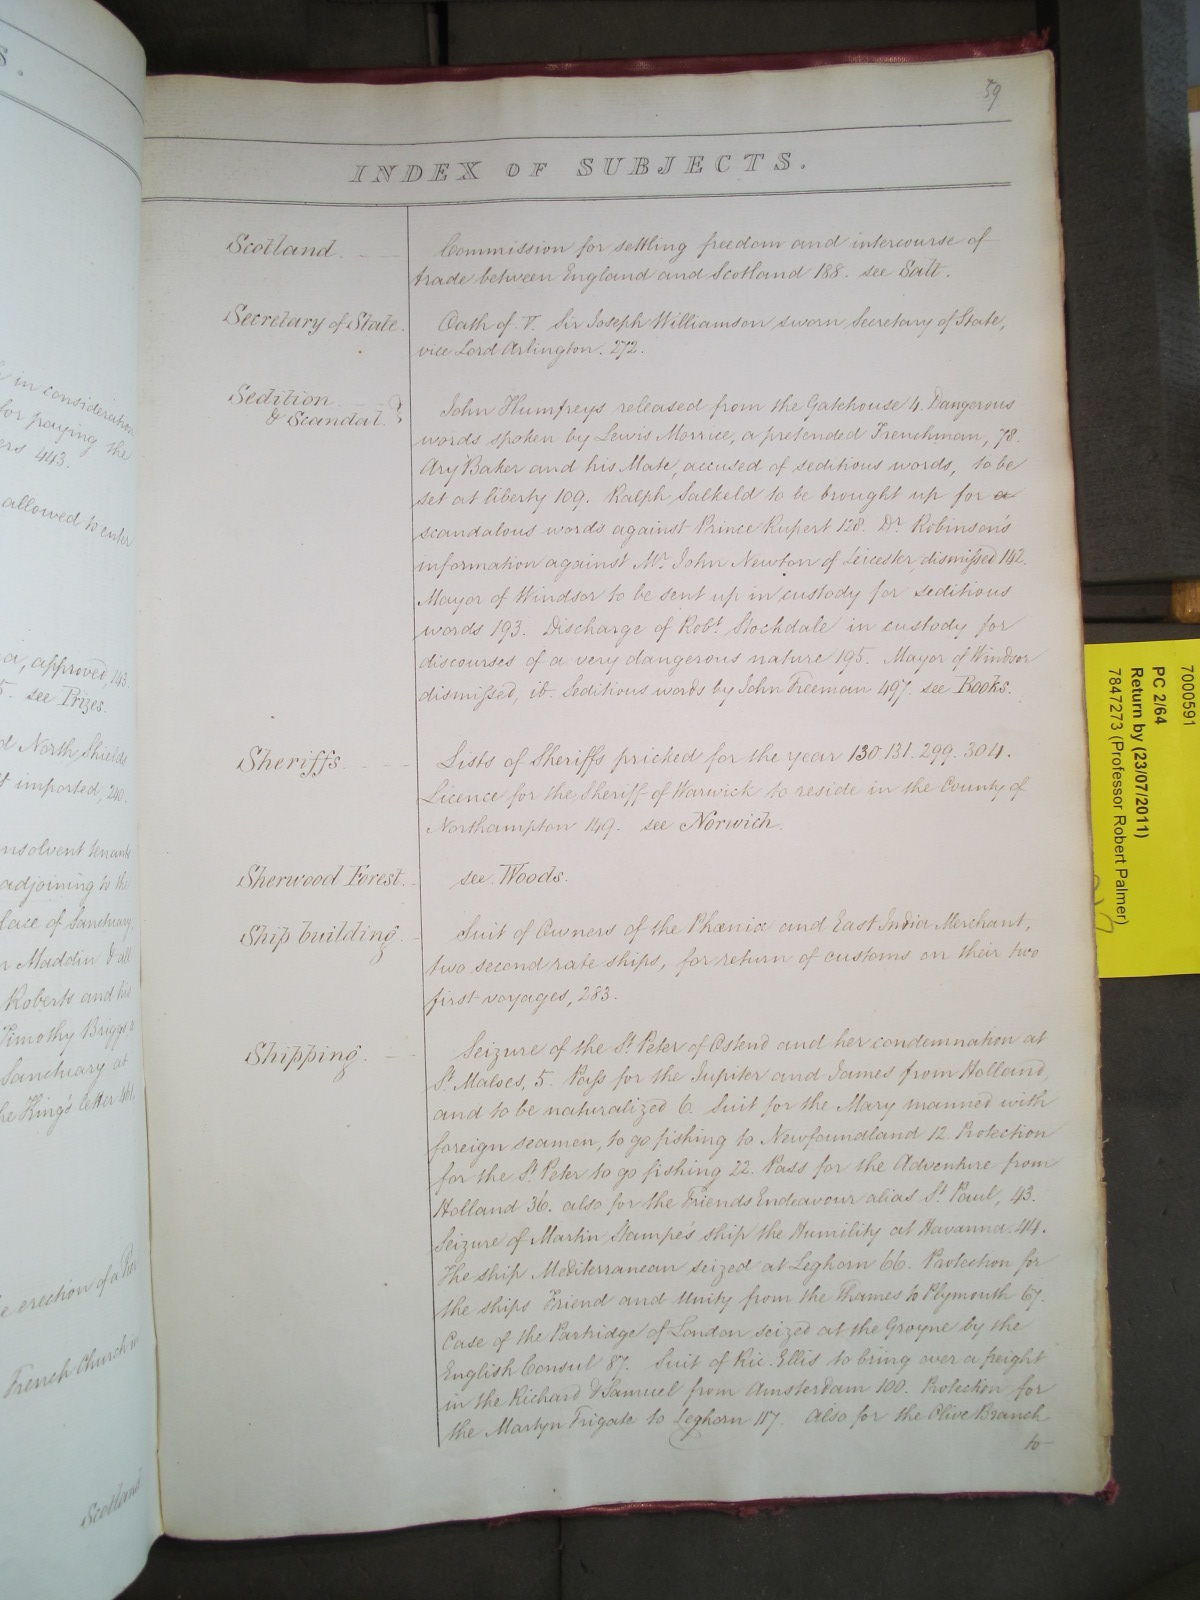 S.
in consideration
for paying the
ers 443.
allowed to enter
a, approved, 143.
5. see Prizes.
d North Shields
t imported 240.
nsolvent tenants
adjoining to the
lace of Sanctuary
r Maddin & all
Roberts and his
Timothy Briggs
Sanctuary at
he King's letter 461.
e erection of a Pier
French Church
Scotland
59
INDEX OF SUBJECTS.
Scotland. Commission for settling freedom and intercourse of
trade between England and Scotland 188. see Salt.
Secretary of State. Oath of. V. Sir Joseph Williamson sworn Secretary of State,
vice Lord Arlington. 272.
Sedition
& Scandal. John Humfreys released from the Gatehouse 4. Dangerous
words spoken by Lewis Morrice, a pretended Frenchman, 78.
Ary Baker and his Mate, accused of seditious words, to be
set at liberty 109. Ralph Salkeld to be brought up for a
scandalous words against Prince Rupert 128. Dr. Robinson's
information against Mr. John Newton of Leicester, dismissed 142.
Mayor of Windsor to be sent up in custody for seditious
words 193. Discharge of Robt. Stockdale in custody for
discourses of a very dangerous nature 195. Mayor of Windsor
dismissed, ib. Seditious words by John Freeman 497. see Books.
Sheriffs Lists of Sheriffs pricked for the year 130. 131. 299. 304.
Licence for the Sheriff of Warwick to reside in the County of
Northampton 149. see Norwich.
Sherwood Forest. see Woods.
Ship building. Suit of Owners of the Phœnix and East India Merchant,
two second rate ships, for return of customs on their two
first voyages, 283.
Shipping. Seizure of the St. Peter of Ostend and her condemnation at
St. Maloes, 5. Pass for the Jupiter and James from Holland,
and to be naturalized 6. Suit for the Mary manned with
foreign seamen, to go fishing to Newfoundland 12. Protection
for the St. Peter to go fishing 22. Pass for the Adventure from
Holland 36. also for the Friends Endeavour alias St. Paul, 43.
Seizure of Martin Stampe's ship the Humility at Havanna. 44.
The ship Mediterranean seized at Leghorn 66. Protection for
the ships Friend and Unity from the Thames to Plymouth 67.
Case of the Partridge of London seized at the Groyne by the
English Consul 87. Suit of Ric. Ellis to bring over a freight
in the Richard & Samuel from Amsterdam 100. Protection for
the Martyn Frigate to Leghorn 117. Also for the Olive Branch
to
7000591
PC 2/64
Return by (23/07/2011)
7847273 (Professor Robert Palmer)